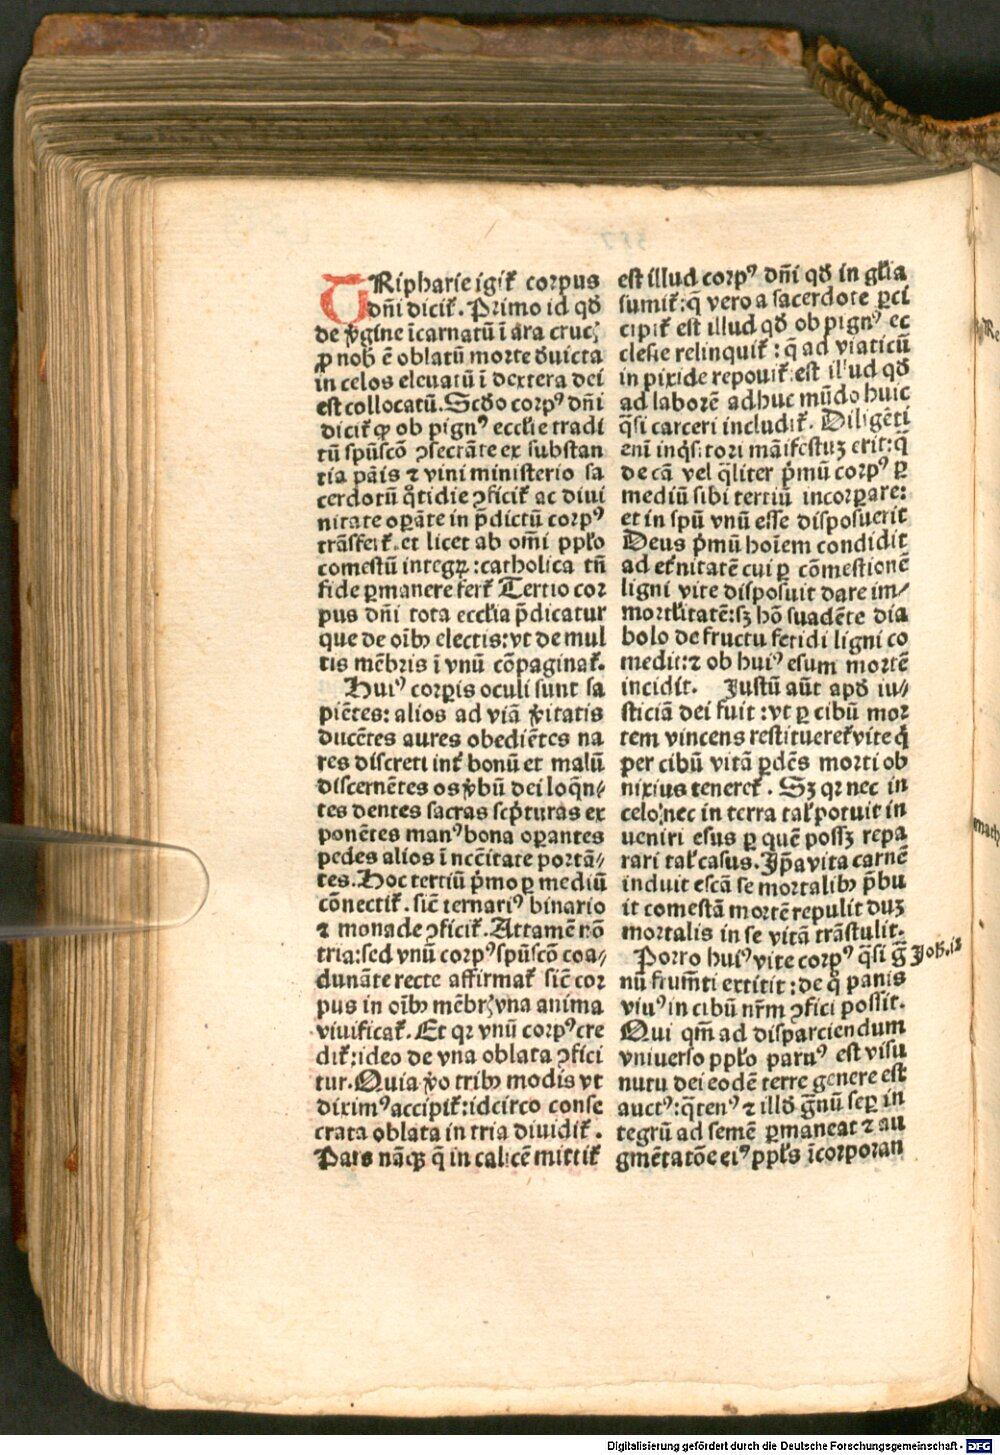 TRipharie igit᷑ corpus
dn̄i dicit᷑. Primo id qd̄
de v̄gine īcarnatū ī ara cruc̨
ꝓ nob̄ ē oblatū morte deuicta
in celos eleuatū ī dextera dei
est collocatū. Scd̄o corpꝰ dn̄i
dicit᷑ ꝙ ob pignꝰ eccl̄ie tradi
tū spūscō ꝯsecrāte ex substan
tia pāis ⁊ vini ministerio sa
cerdotū q̊tidie ꝯficit᷑ ac diui
nitate oꝑāte in p̄dictū corpꝰ
trāsfert᷑. et licet ab om̄i ppl̄o
comestū integrꝝ : catholica tn̄
fide ꝑmanere fert᷑ Tertio cor
pus dn̄i tota eccl̄ia p̄dicatur
que de oīb̄ electis: vt de mul
tis mēbris ī vnū cōpaginat᷑.
Huiꝰ corꝑis oculi sunt sa
piētes: alios ad viā v̄itatis
ducētes aures obediētes na
res discreti int᷑ bonū et malū
discernētes os v̄bū dei loq̄n⸗
tes dentes sacras scp̄turas ex
ponētes manꝰ bona oꝑantes
pedes alios ī nccītate portā⸗
tes. Hoc tertiū p̄mo ꝑ mediū
cōnectit᷑. sic̄ ternariꝰ binario
⁊ monade ꝯficit᷑. Attamē nō
tria: sed vnū corpꝰ spūscō coa⸗
dunāte recte affirmat᷑ sic̄ cor
pus in oīb̄ mēbr̨ vna anima
viuificat᷑. Et qꝛ vnū corpꝰ cre
dit᷑: ideo de vna oblata ꝯfici
tur. Quia v̄o trib̄ modis vt
diximꝰ accipit᷑: idcirco conse
crata oblata in tria diuidit᷑.
Pars nāqꝫ q̄ in calicē mittit᷑
est illud corpꝰ dn̄i qd̄ in gl̄ia
sumit᷑: q̄ vero a sacerdote ꝑci
cipit᷑ est illud qd̄ ob pignꝰ ec
clesie relinquit᷑: q̄ ad viaticū
in pixide reponit᷑ est illud qd̄
ad laborē adhuc mūdo huic
q̄si carceri includit᷑. Diligēti
eni inq̄sitori māifestuꝫ erit: q̄
de cā vel q̄liter p̄mū corpꝰ ꝑ
mediū sibi tertiū incorꝑare:
et in spū vnū esse disposuerit
Deus p̄mū hoīem condidit
ad et᷑nitatē cui ꝑ cōmestionē
ligni vite disposuit dare im⸗
mortl̄itatē: sꝫ hō suadēte dia
bolo de fructu fetidi ligni co
medit: ⁊ ob huiꝰ esum mortē
incidit. Justū aūt apd̄ iu⸗
sticiā dei fuit : vt ꝑ cibū mor
tem vincens restitueret᷑ vite q̇
per cibū vitā ꝑdēs morti ob
nixius teneret᷑. Sꝫ qꝛ nec in
celo: nec in terra tal̄ potuit in
ueniri esus ꝑ quē possꝫ repa
rari tal̄ casus. Ip̄a vita carnē
induit escā se mortalib̄ p̄bu
it comestā mortē repulit duꝫ
mortalis in se vitā trāstulit.
Porro huiꝰ vite corpꝰ q̄si ḡ
nū frum̄ti extitit : de q̊ panis
viuꝰ in cibū nr̄m ꝯfici possit.
Qui qm̄ ad disparciendum
vniuerso ppl̄o paruꝰ est visu
nutu dei eodē terre genere est
auctꝰ: q̄tenꝰ ⁊ illd̄ ḡnū seꝑ in
tegrū ad semē ꝑmaneat ⁊ au
gmētatōe eiꝰ ppl̄s īcorporan
Joh̄. iz
Digitalisierung gefördert durch die Deutsche Forschungsgemeinschaft - DFG